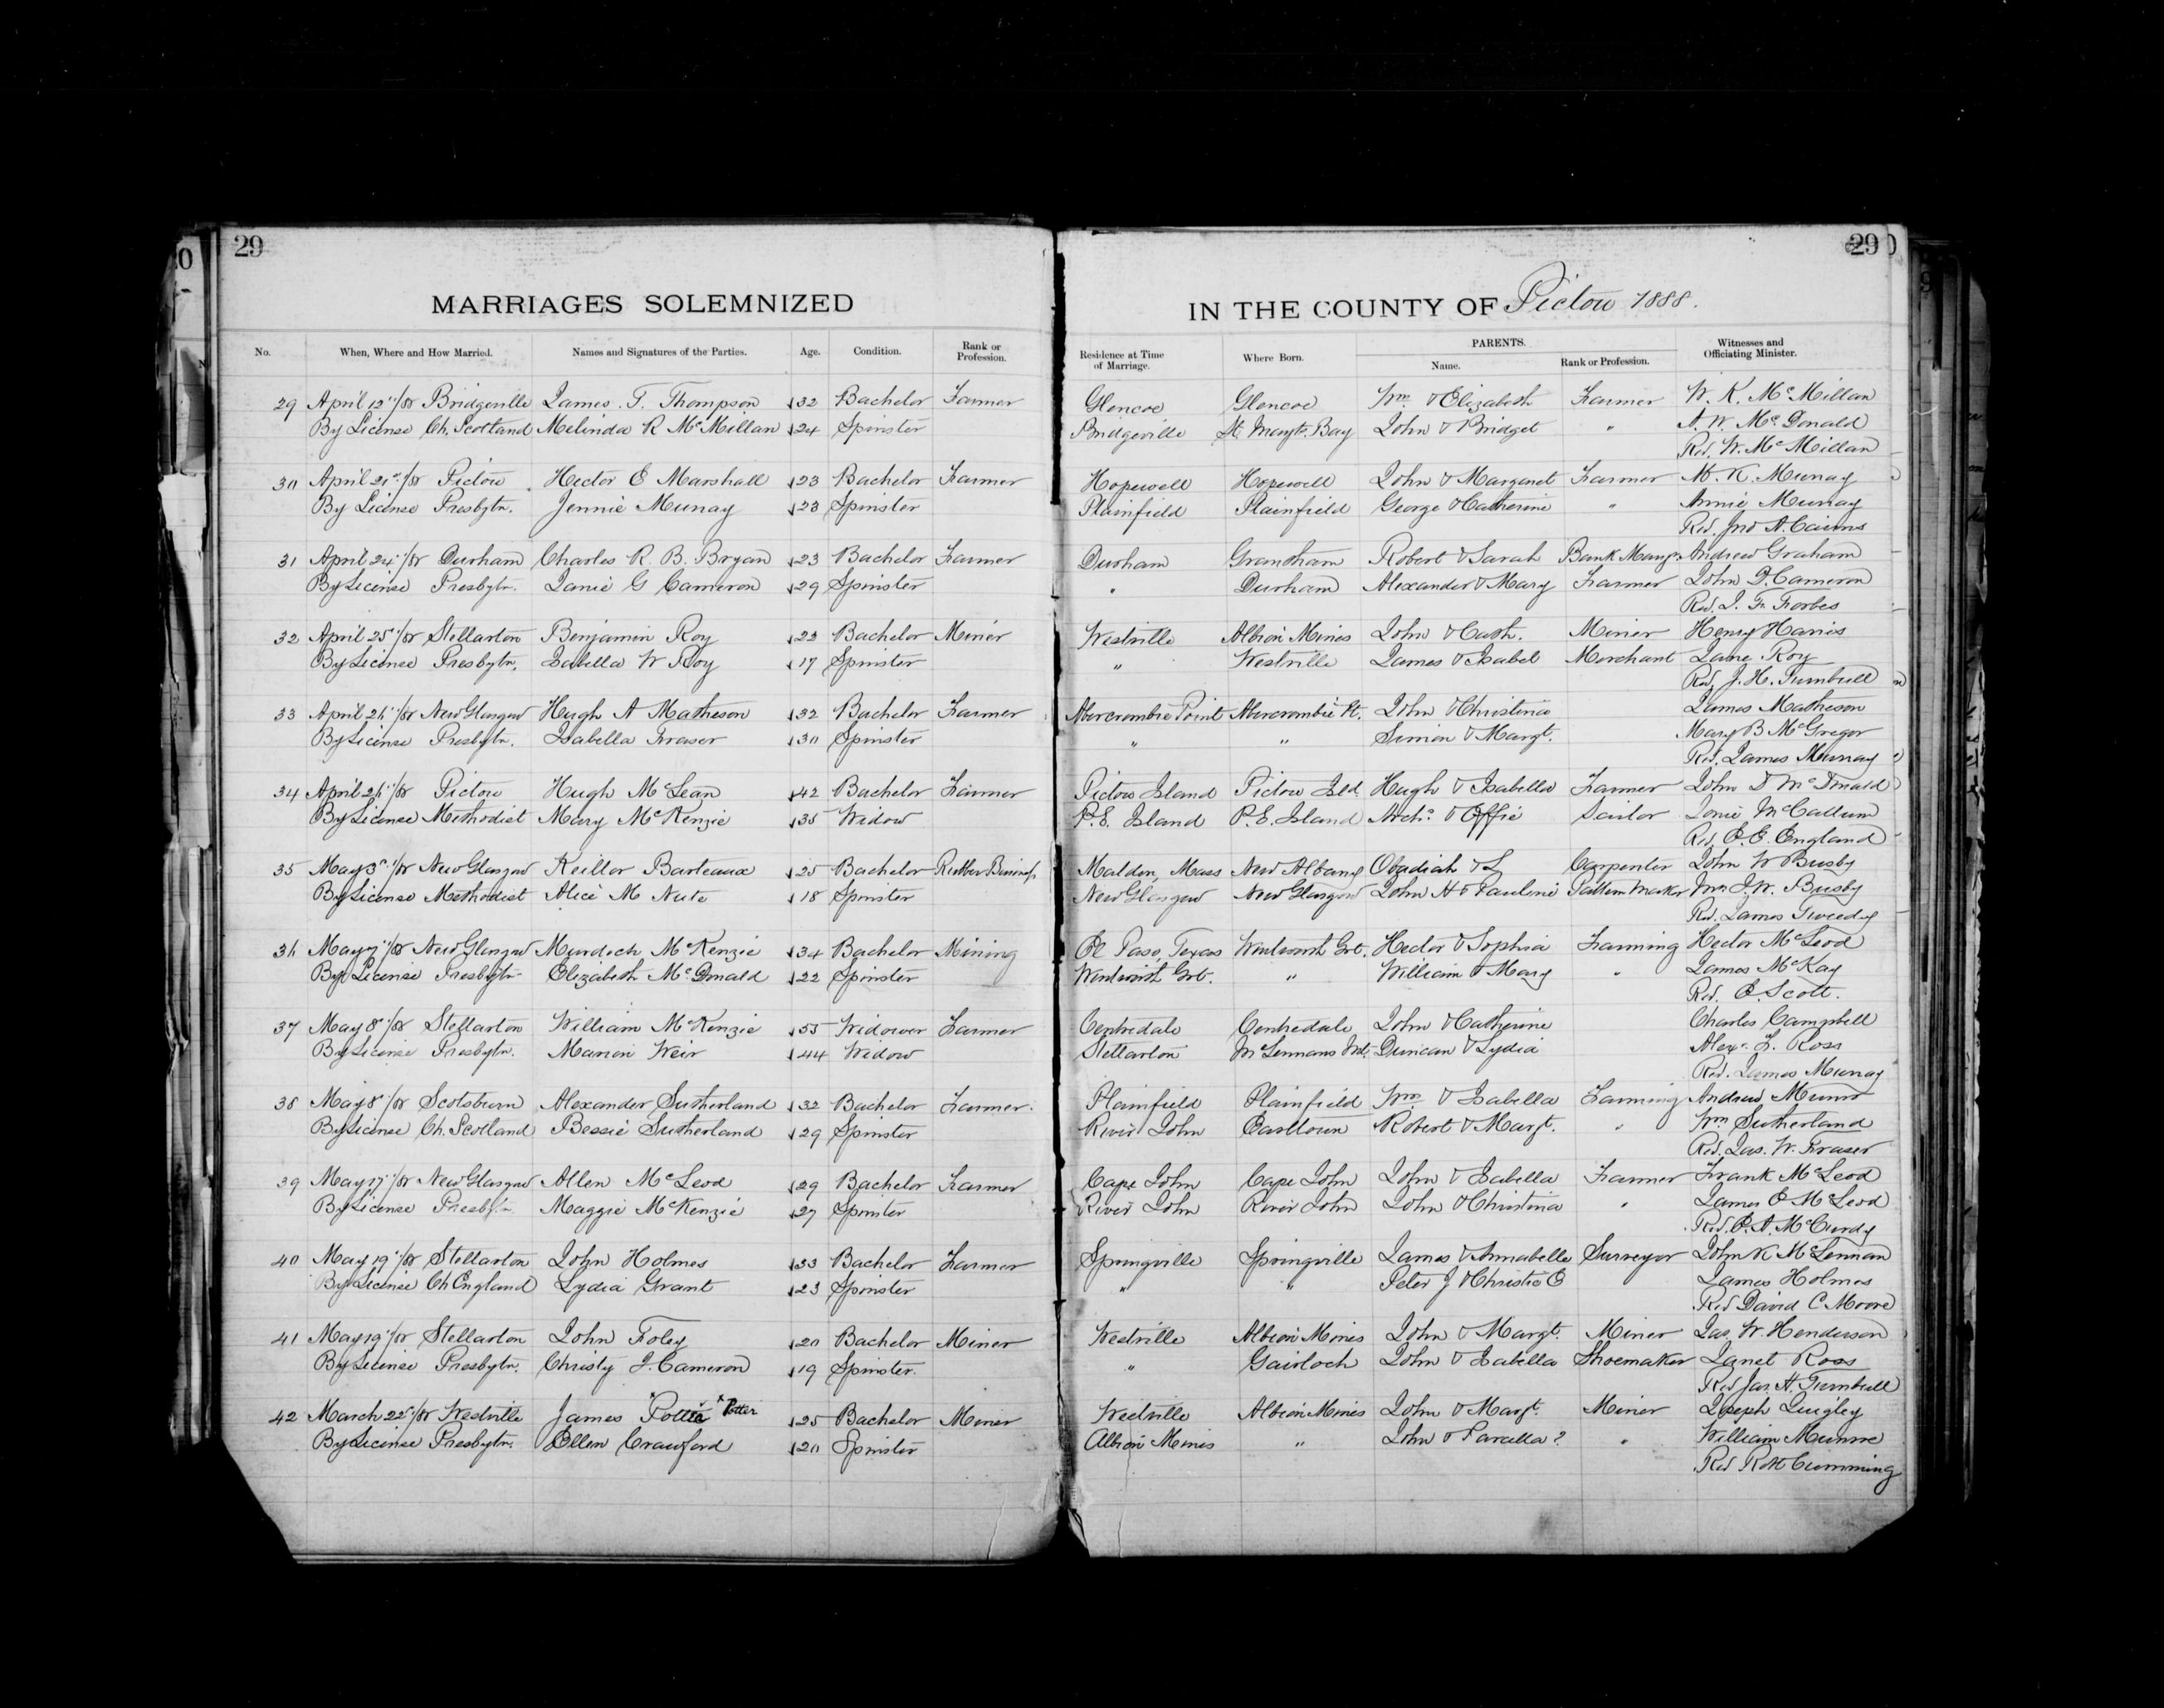 29
MARRIAGES SOLEMNIZED
No. When, Where and How Married. Names and Signatures of the Parties. Age. Condition. Rank or Profession.
29 April 12"/88 Bridgeville James T. Thompson 32 Bachelor Farmer
By License Ch. Scotland Melinda R McMillan 24 Spinster
30 April 21st/88 Pictou Hector E Marshall 23 Bachelor Farmer
By License Presbytn. Jennie Murray 23 Spinster
31 April 24"/88 Durham Charles R. B. Bryan 23 Bachelor Farmer
By License Presbytn. Janie G Cameron 29 Spinster
32 April 25"/88 Stellarton Benjamin Roy 22 Bachelor Miner
By License Presbytn. Isabella W Roy 17 Spinster
33 April 26"/88 New Glasgow Hugh A Matheson 32 Bachelor Farmer
By License Presbytn. Isabella Fraser 30 Spinster
34 April 26"/88 Pictou Hugh McLean 42 Bachelor Farmer
By License Methodist Mary McKenzie 35 Widow
35 May 3"/88 New Glasgow Keillor Barteaux 25 Bachelor Rubber Business
By License Methodist Alice M Nute 18 Spinster
36 May 7"/88 New Glasgow Murdoch McKenzie 34 Bachelor Mining
By License Presbytn Elizabeth McDonald 22 Spinster
37 May 8"/88 Stellarton William McKenzie 55 Widower Farmer
By License Presbytn. Marion Weir 44 Widow
38 May 8"/88 Scotsburn Alexander Sutherland 32 Bachelor Farmer.
By License Ch. Scotland Bessie Sutherland 29 Spinster
39 May 17"/88 New Glasgow Allen McLeod 29 Bachelor Farmer
By License Presbytn Maggie McKenzie 27 Spinster
40 May 19"/88 Stellarton John Holmes 33 Bachelor Farmer
By License Ch England Lydia Grant 23 Spinster
41 May 19"/88 Stellarton John Foley 20 Bachelor Miner
By License Presbytn. Christy J. Cameron 19 Spinster.
42 March 22"/88 Westville James Pottie x Potter 25 Bachelor Miner
By License Presbytn. Ellen Crawford 20 Spinster
29
IN THE COUNTY OF Pictou 1888.
Residence at Time of Marriage. Where Born. PARENTS. Name. Rank or Profession. Witnesses and Officiating Minister.
Glencoe Glencoe Wm & Elizabeth Farmer W. K. McMillan
Bridgeville St. Margts. Bay John & Bridget " A. W. McDonald
Rev. W. McMillan
Hopewell Hopewell John & Margaret Farmer K. Murray
Plainfield Plainfield George & Catherine " Annie Murray
Rev. Jno A. Cairns
Durham Grantham Robert & Sarah Bank Mangr. Andrew Graham
" Durham Alexander & Mary Farmer John D. Cameron
Rev. J. F. Forbes
Westville Albion Mines John & Cath. Miner Henry Harris
" Westville James & Isabel Merchant Jane Roy
Rev. J. H. Turnbull
Abercrombie Point Abercrombie Pt. John & Christina James Matheson
" " Simon & Margt. Mary B McGregor
Rev. James Murray
Pictou Island Pictou Isld. Hugh & Isabella Farmer John D McDonald
P. E. Island P. E. Island Archd. & Effie Sailor McCallum
Rev. E. E. England
Malden, Mass New Albany Obadiah & L Carpenter John W Busby
New Glasgow New Glasgow John H & Pauline Pattern Maker Mrs J. W. Busby
Rev. James Tweedy
El Paso, Texas Wentworth Grt. Hector & Sophia Farming Hector McLeod
Wentworth Grt. " William & Mary " James McKay
Rev. E. Scott.
Centredale Centredale John & Catherine Charles Campbell
Stellarton McLennans Mt. Duncan & Lydia Alexr. F. Ross
Rev. James Murray
Plainfield Plainfield Wm & Isabella Farming Andrew Munro
River John Earltown Robert & Margt. " Wm Sutherland
Rev. Jas. W. Fraser
Cape John Cape John John & Isabella Farmer Frank McLeod
River John River John John & Christina " James E McLeod
Rev. E. A. McCurdy
Springville Springville James & Annabella Surveyor John K McLennan
" " Peter J & Christie E James Holmes
Rev David C. Moore
Westville Albion Mines John & Margt. Miner Jas. W. Henderson
" Gairloch John & Isabella Shoemaker Janet Ross
Rev Jas. H. Turnbull
Westville Albion Mines John & Margt. Miner Joseph Quigley
Albion Mines " John & Parcella? " William Munroe
Rev Robt Cumming